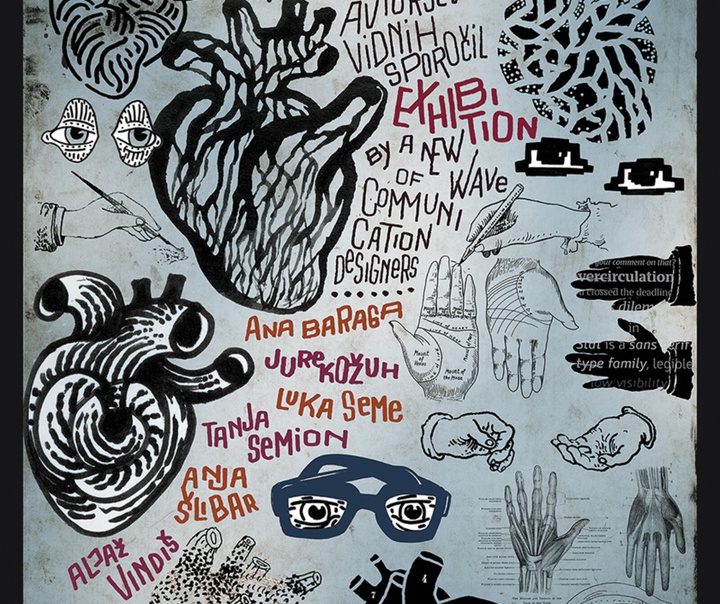 AVTORSEV
VIDNIH
SPOROČIL
EXHIBI
TION
BY A NEW
WAVE
OF
COMMUNI
CATION
DESIGNERS
ANA BARAGA
JURE KOŽUH
LUKA SEME
TANJA
SEMION
ANJA
ŠLIBAR
ALJAŽ
VINDIŠ
your comment on that
vercirculation
crossed the deadline
dilem
in
Stat is a sans serif
type family, legible
low visibility
Mount of Venus
Mount of the Moon
7
4